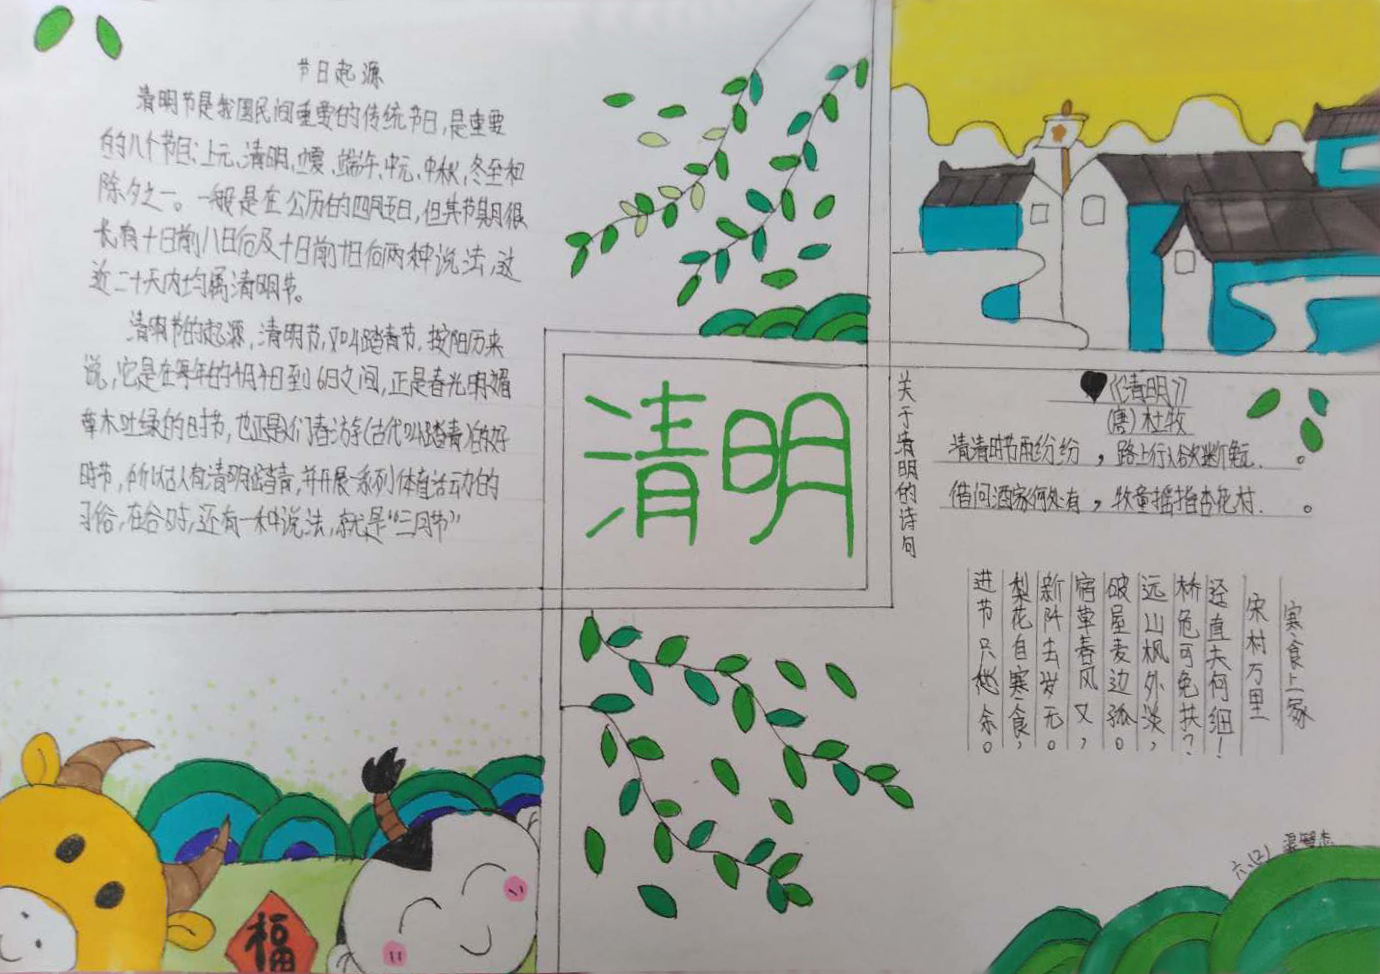 节日起源
清明节是我国民间重要的传统节日,是重要
的八个节日:上元、清明、立夏、端午、中元、中秋、冬至和
除夕之一。一般是在公历的四月五日,但其节期很
长,有十日前八日后及十日前十日后两种说法,这
近二十天内均属清明节。
清明节的起源,清明节,又叫踏青节,按阳历来
说,它是在每年的4月4日到6日之间,正是春光明媚
草木吐绿的时节,也正是人们春游(古代叫踏青)的好
时节,所以古人有清明踏青,并开展一系列体育活动的
习俗,在古时,还有一种说法,就是“三月节”
清明
关于清明的诗句
《清明》
(唐)杜牧
清清时节雨纷纷,路上行人欲断魂.。
借问酒家何处有,牧童摇指杏花村.。
寒食上冢
宋村万里
迳直夫何细!
桥危可免扶?
远山枫外淡,
破屋麦边孤。
宿草春风又,
新阡去岁无。
梨花自寒食,
进节只愁余。
六(2)
福